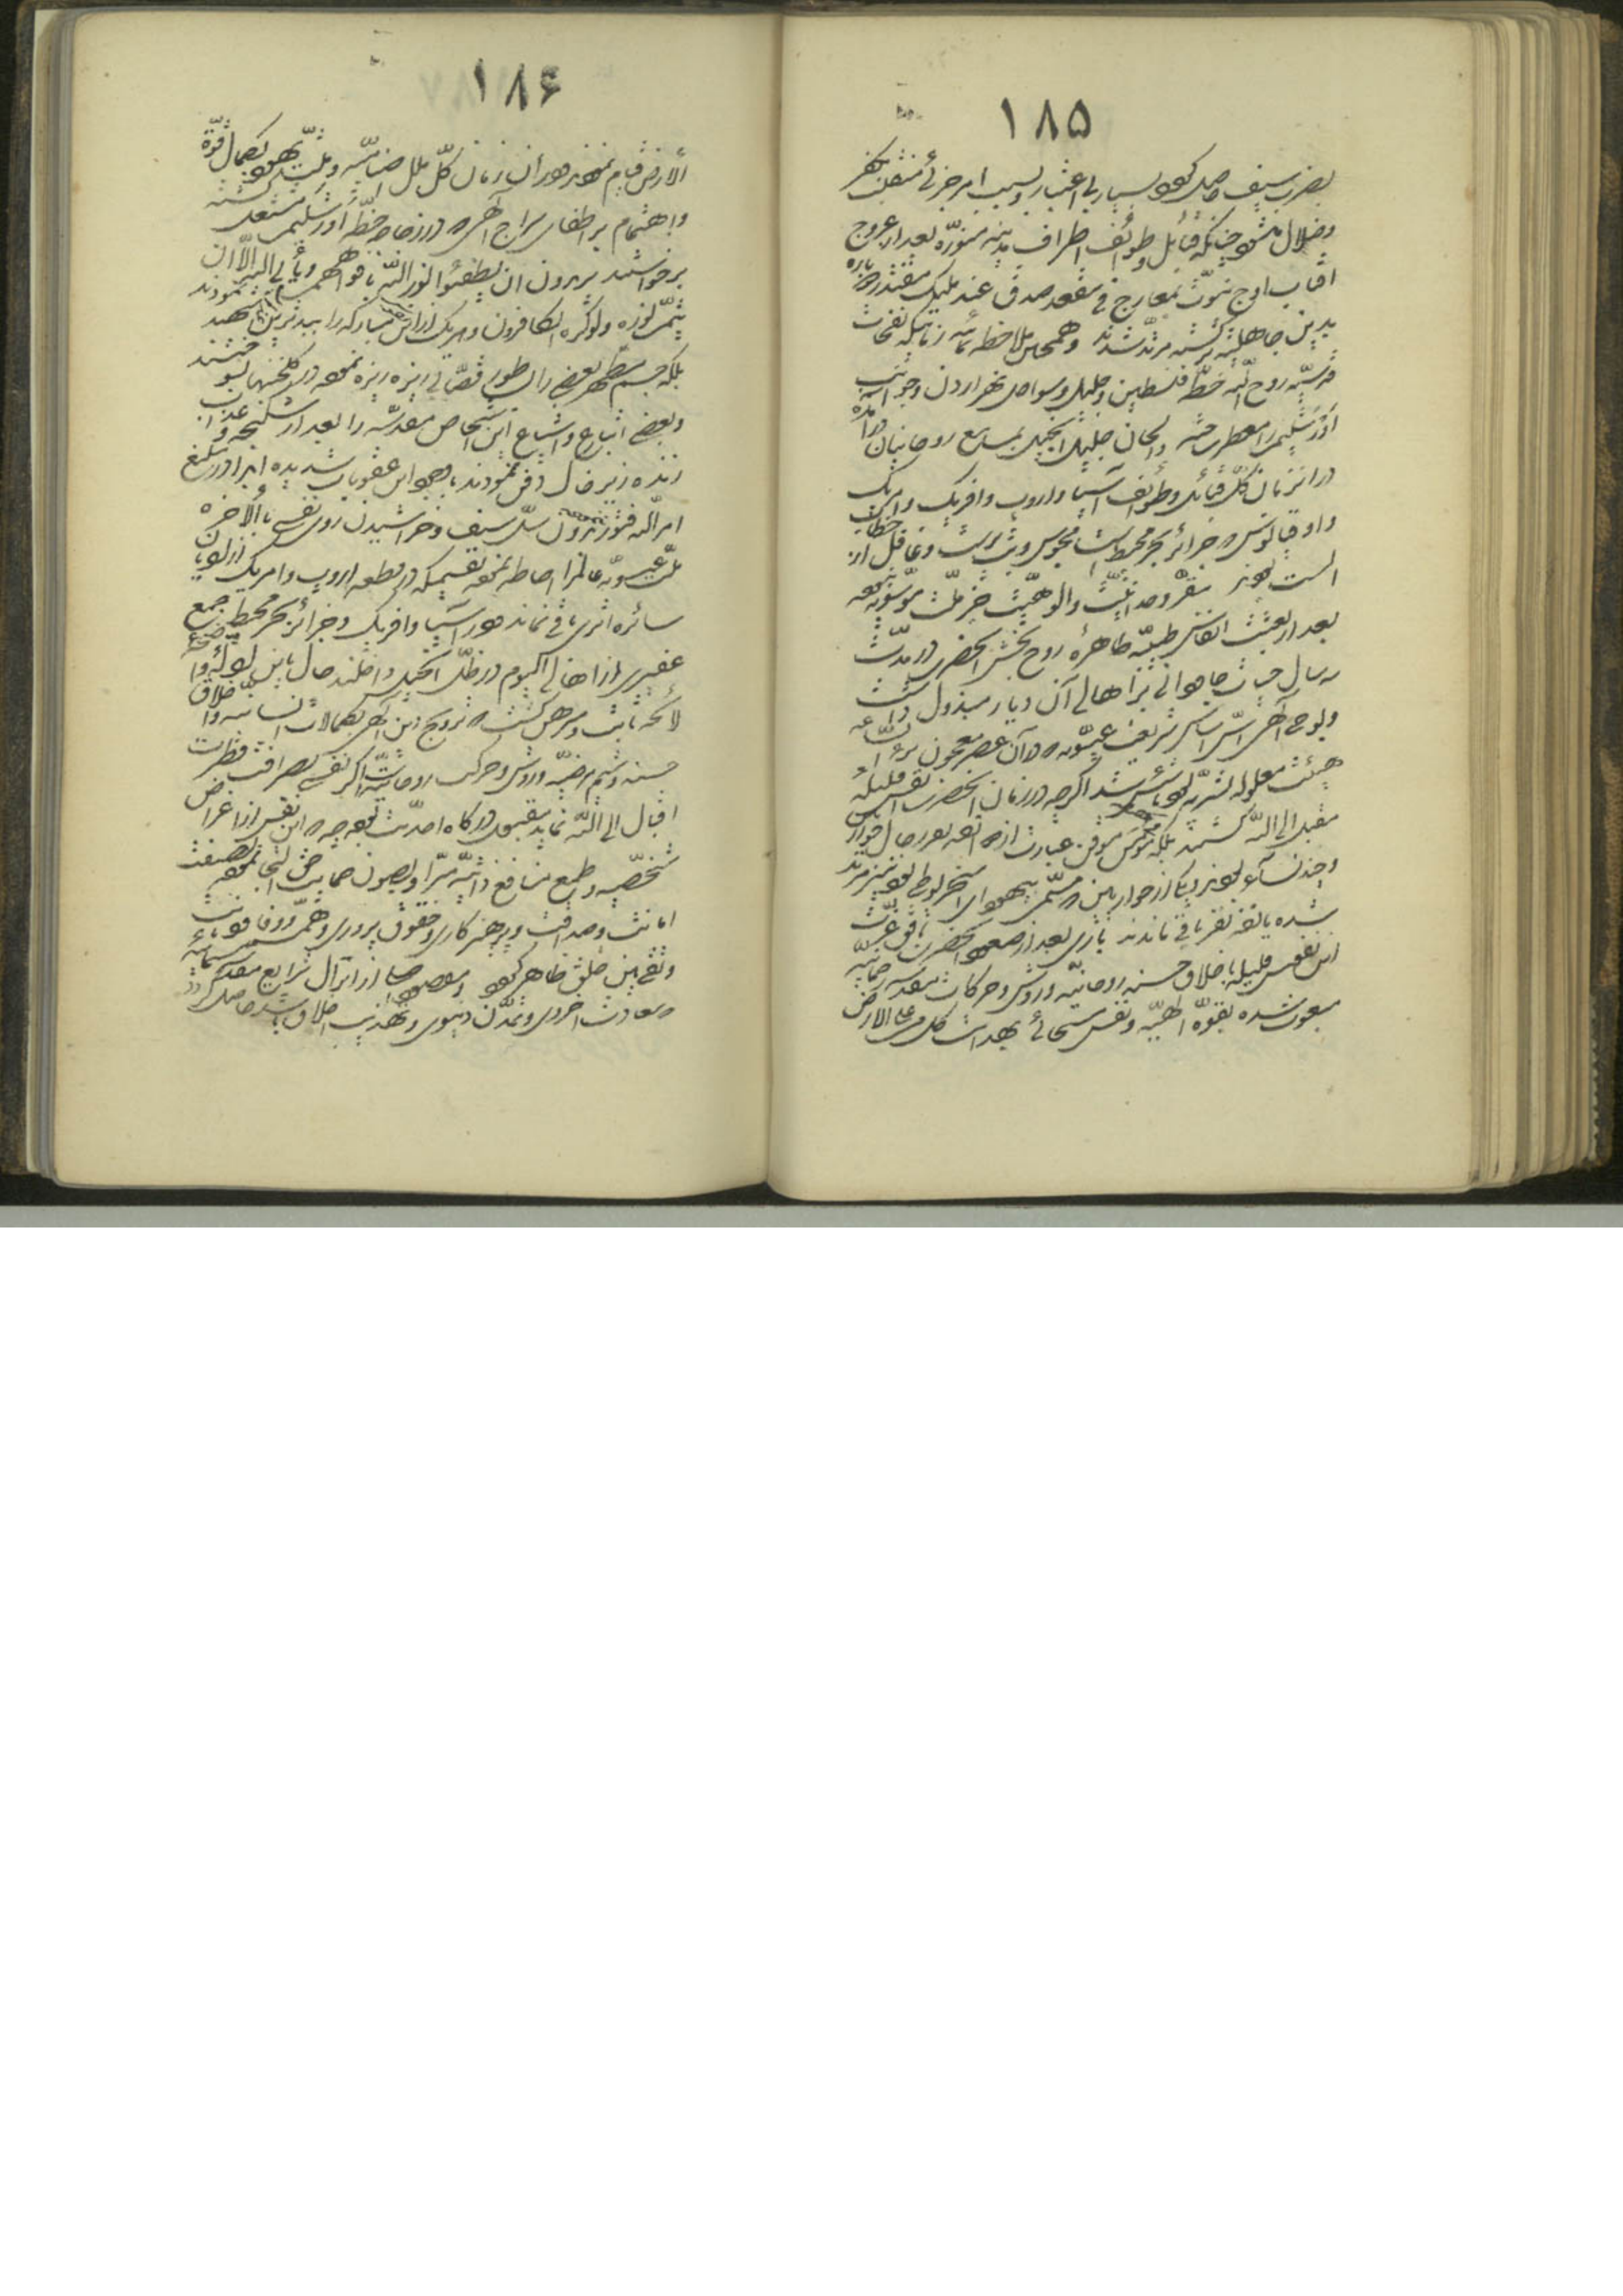 ۱۸۵
بضرب سیف حاصل گردد بسیار بی اعتبار و بسبب امر جزئی منقلب بکفر
و ضلال میشود چنانکه قبائل و طوائف اطراف مدینه منوّره بعد از عروج
آفتاب اوج نبوّت بمعارج فی مقعد صدق عند ملیک مقتدر دوباره
بدین جاهلیّت برگشته مرتدّ شدند و همچنین ملاحظه نمائید زمانیکه نفحات
قدسیّه روح اللّه خطّه فلسطین و جلیل و سواحل نهر اردن و جوانب
اورشلیم را معطر ساخت و الحان جلیل انجیل بمسامع روحانیان درآمد
در آنزمان کلّ قبائل و طوائف آسیا و اروپ و افریک و امریک
و اوقیانوس که جزائر بحر محیط است مجوس و بت پرست و غافل از خطاب
الست بودند مقرّ وحدانیّت و الوهیّت جز ملّت موسویّه نبود
بعد از بعثت انفاس طیّبه طاهرهٔ روح بخش آنحضرت در مدّت
سه سال حیات جاودانی بر اهالی آن دیار مبذول داشت
و بوحی الهی اسّ اساس شریعت عیسویّه که در آن عصر معجون برء السّاعه
هیئت معلوله بشریّه بود تأسیس شد اگرچه در زمان آنحضرت انفس قلیله
مقبل الی اللّه گشتند بلکه مؤمن موقن عبارت از دوازده نفر رجال حواری
و چند نساء بودند و یکی از حواریین که مسمّی بیهودای اسخریوطی بود نیز مرتد
شده یازده نفر باقی ماندند باری بعد از صعود آنحضرت بافق عزّت
این نفوس قلیله باخلاق حسنه روحانیّه و روش و حرکات مقدسه رحمانیّه
مبعوث شده بقوّه الهیّه و نفس مسیحائی بهدایت کل من علی الارض
۱۸۶
الارض قیام نمودند در آن زمان کلّ ملل صنامیّه و ملّت یهود بکمال قوّت
و اهتمام بر اطفای سراج الهی که در زجاجه خطّه اورشلیم مشتعل گشته
برخواستند یریدون ان یطفئوا نور اللّه بافواههم و یأبی اللّه الّا ان
یتمّ نوره ولو کره الکافرون و هر یک از این نفوس مبارکه را ببدترین عذابی شهید نمودند
بلکه جسم مطهر بعضی را بساطور قصّابی ریزه ریزه نموده در گلخنها بسوختند
و بعضی اتباع و اشیاع این اشخاص مقدّسه را بعد از شکنجه و عذاب
زنده زیر خاک دفن نمودند باوجود این عقوبات شدیده ابداً در تبلیغ
امر اللّه فتور ننمودند و بدون سلّ سیف و خراشیدن روی نفسی بالاخره
ملّت عیسویّه عالم را احاطه نمود بقسمیکه در قطعه اروپ و امریک از ادیان
سائره اثری باقی نماند و در آسیا و افریک و جزائر بحر محیط جمع
غفیری از اهالی الیوم در ظلّ انجیل داخلند حال باین ادلّه واضحه
لائحه ثابت و مبرهن گشت که ترویج دین الهی بکمالات انسانیّه و اخلاق
حسنه و شیم مرضیّه و روش و حرکت روحانیّه است اگر نفسی بصرافت فطرت
اقبال الی اللّه نماید مقبول درگاه احدّیت بوده چه که این نفس از اغراض
شخّصیه و طمع منافع ذاتیّه مبرّا و بصون حمایت حق التجا نموده بصفت
امانت و صداقت و پرهیزکاری و حقوق پروری و همّت و وفا و دیانت
و تقی بین خلق ظاهر گردد و مقصود اصلی از انزال شرایع مقدسه سماویّه
سعادت اخروی و تمدّن دنیوی و تهذیب اخلاق باشد حاصل گردد